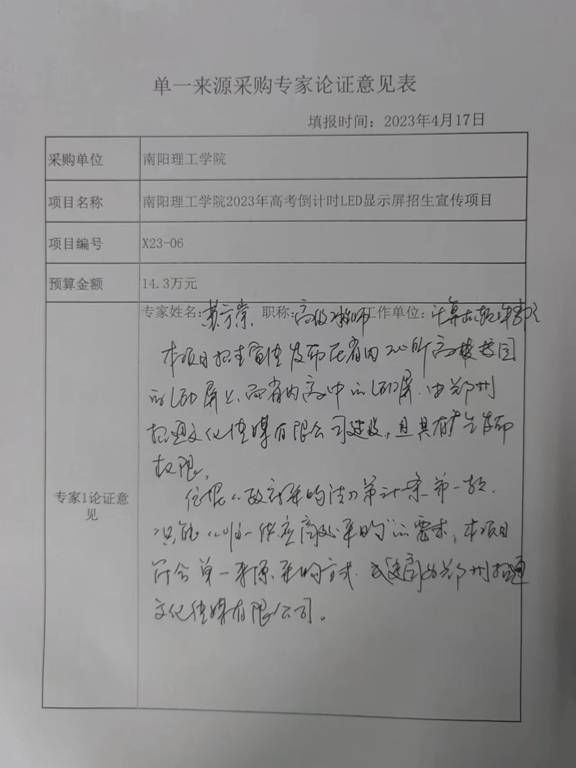 单一来源采购专家论证意见表
填报时间：2023年4月17日
采购单位 南阳理工学院
项目名称 南阳理工学院2023年高考倒计时LED显示屏招生宣传项目
项目编号 X23-06
预算金额 14.3万元
专家姓名： 职称：高级工程师 工作单位：
本项目招生宣传发布在省内 所高校校园
的LED屏上，而省内高中的LED屏，由郑州
文化传媒有限公司建设，且具有 发布
权限。
专家1论证意见
依据《政府采购法》第三十一条第一款，
“只能从唯一供应商处采购”的需求，本项目
符合单一来源采购方式， 郑州
文化传媒有限公司。